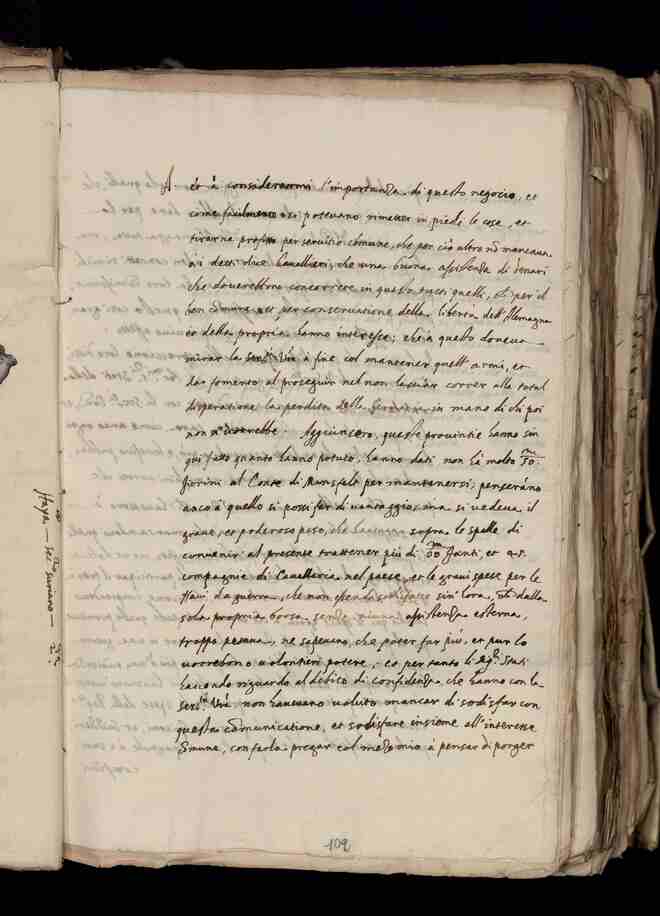 et à considerarmi l'importanza di questo negocio, et
come facilmente si potevano rimetter in piedi le cose, et
tirarne profitto per servitio comune, che per ciò altro nō mancava
ai detti due Cavallieri, che una buona assistenza di denari
che doverebbono concorrere in questo tutti quelli, che per il
ben cōmune, et per conservatione della libertà dell'Alemagna
et della propria hanno interesse; che à questo doveva
mirar la Ser.tà V.ra à fine col mantener quell'armi, et
dar fomento al proseguir nel non lasciar correr alla total
disperatione la perdita della Germania in mano di chi poi
non si vorrebbe. Aggiunsero, queste provintie hanno sin
qui fatto quanto hanno potuto, hanno dati non hà molto 50.m
fiorini al Conte di Mansfelt per mantenersi; penseranno
anco à quello si possi far di vantaggio; ma si vedeva il
grave, et poderoso peso, che havevano sopra le spalle di
convenir al presente trattener più di 60.m fanti, et
compagnie di Cavalleria nel paese, et le gravi spese per le
Navi da guerra, che non sin'hora, che dalla
sola propria borsa senza niuna assistenza esterna,
troppo pesava, ne sapevano, che poter far più, et pur lo
vorrebbono volontieri potere; et per tanto li Sig.ri Stati
havendo riguardo al debito di confidenza, che hanno con la
Ser.tà V.ra non havevano voluto mancar di sodisfar con
questa cōmunicatione, et sodisfare insieme all'interesse
cōmune, con farla pregar col mezo mio à pensar di porger
Haya
109